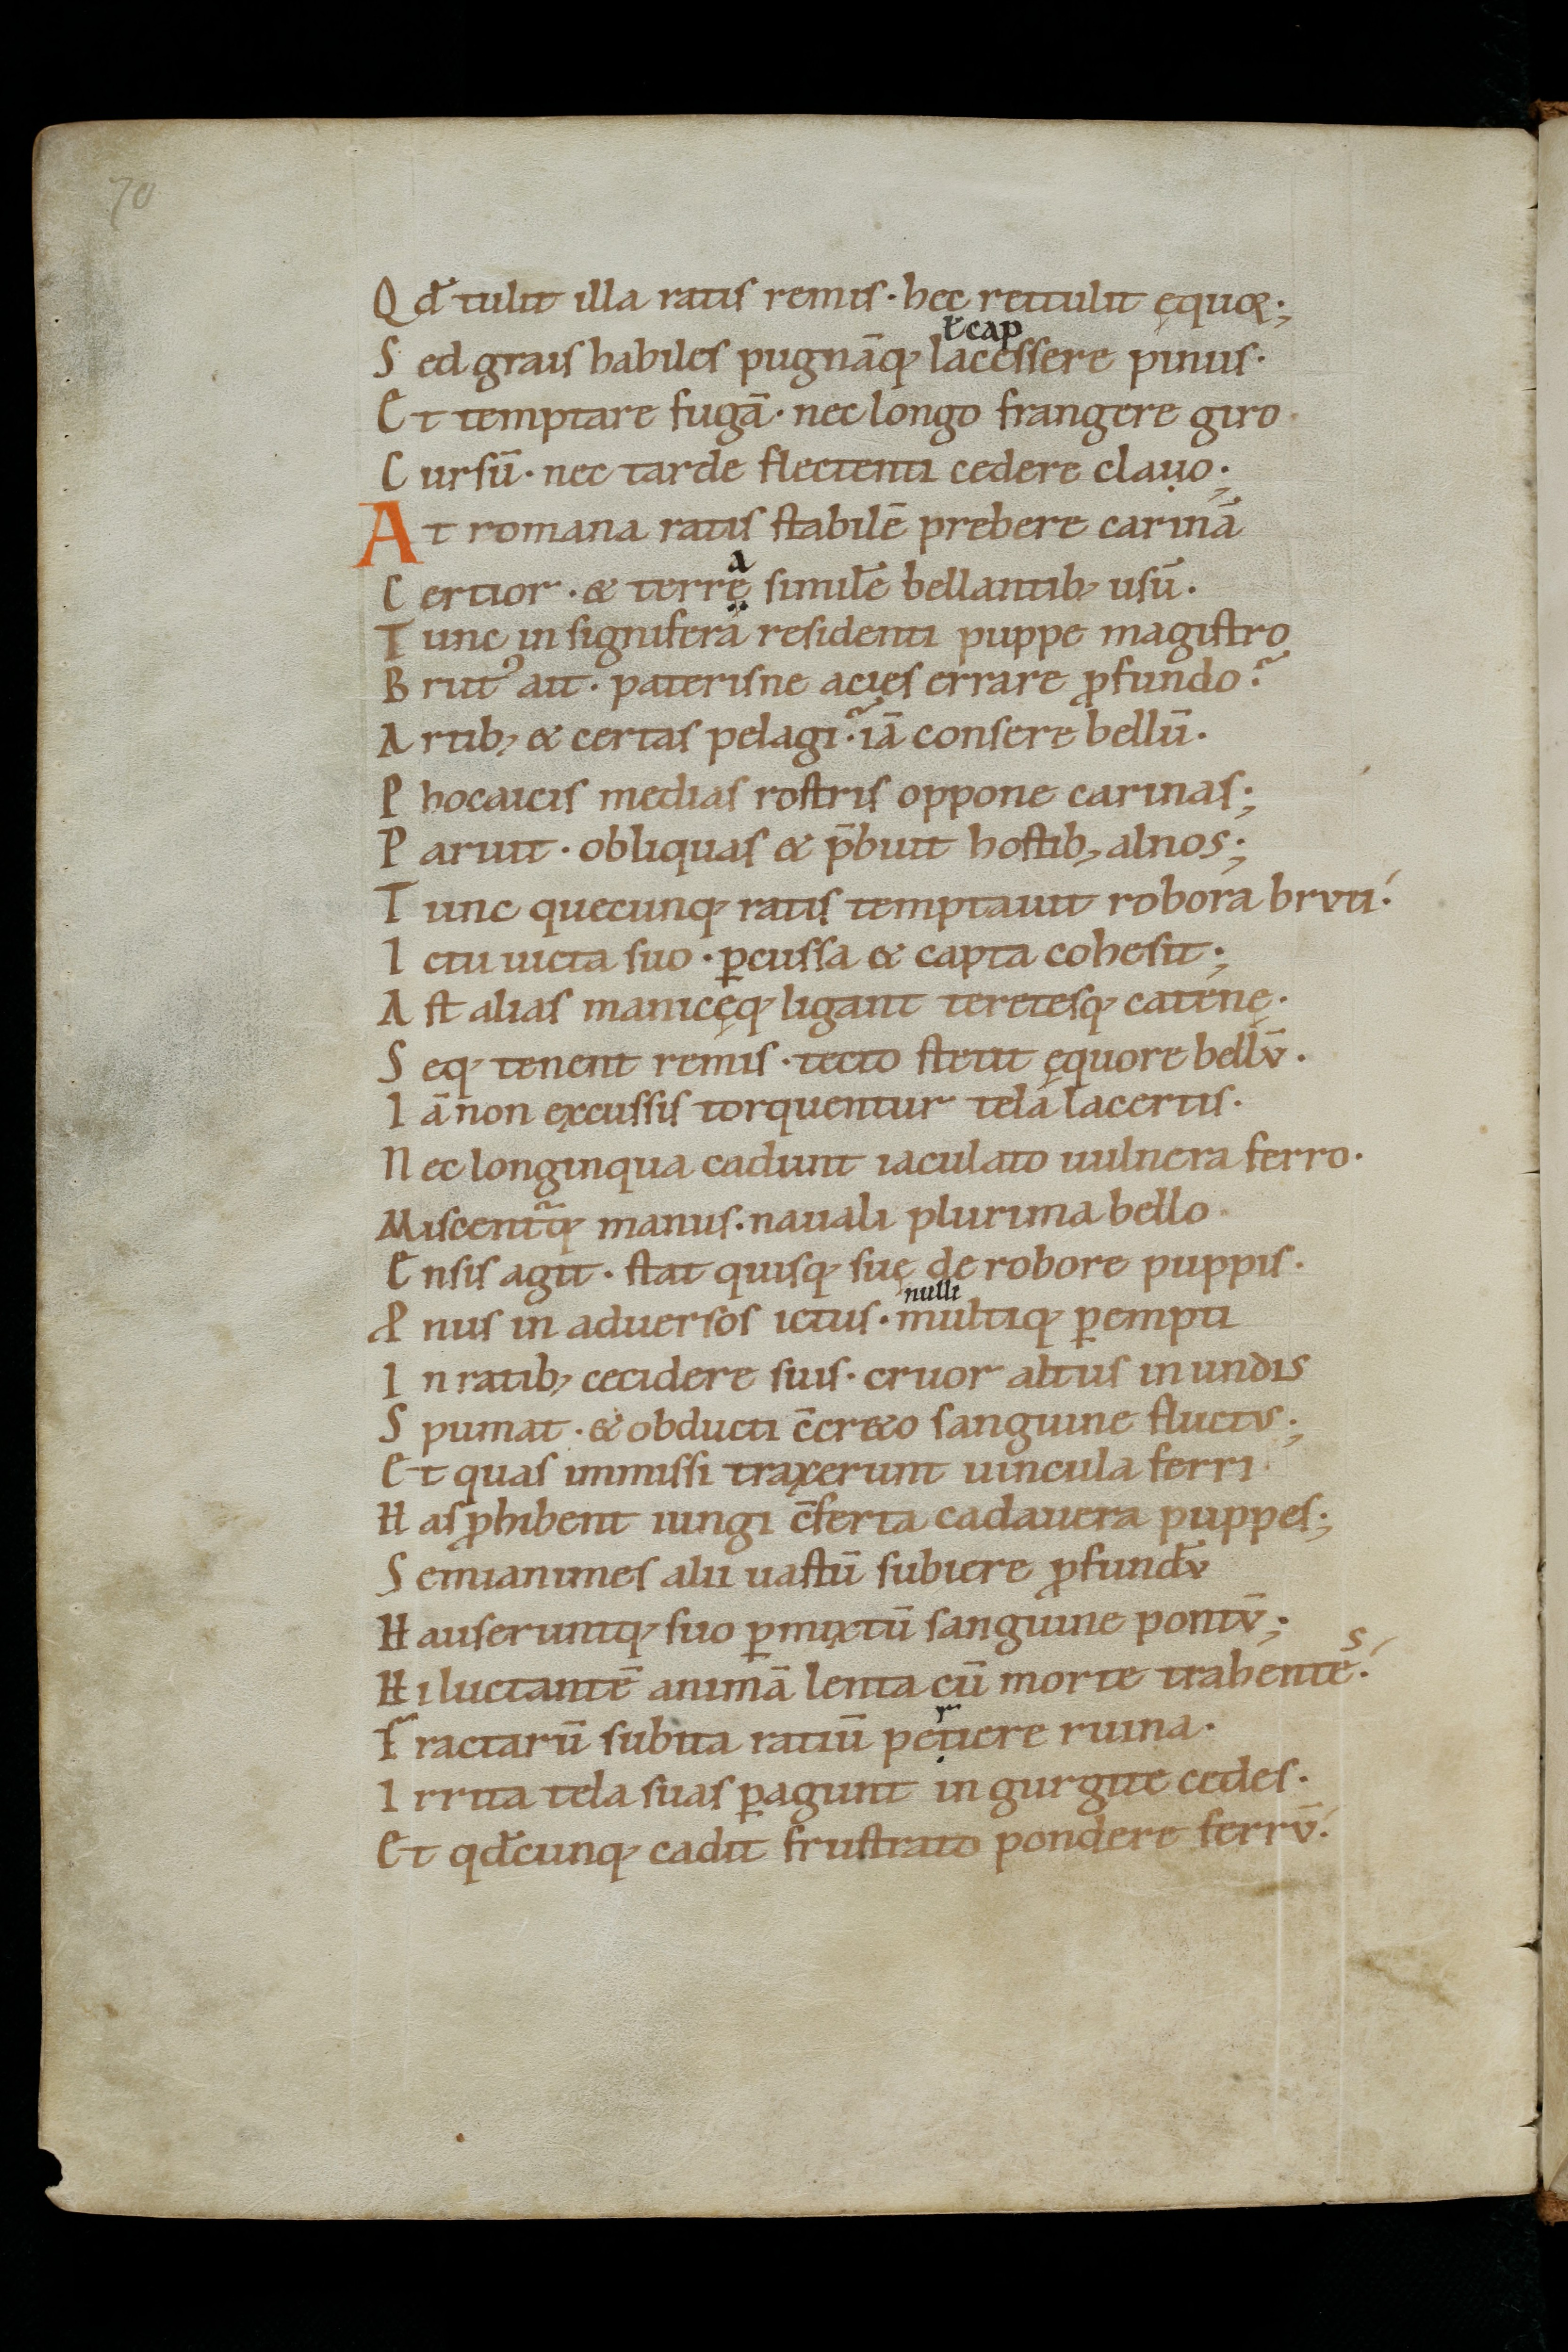 70
Qđ tulit illa ratis remis · hec rettulit ęquor·;
ł cap
Sed grais habiles pugnāq; lacessere pinus·
Et temptare fugā · nec longo frangere giro·
Cursū · nec tarde flectenti cedere clauo·;
At romana ratis stabilē prebere carinā
a
Certior · & terrę similē bellantib; usū·
Tunc in signifera residenti puppe magistro
Brut᾽ ait · paterisne acies errare ꝓfundo?
Artib; & certas pelagi? iā consere bellū·
Phocaicis medias rostris oppone carinas·;
Paruit · obliquas & p̄buit hostib; alnos·;
Tunc quecunq; ratis temptauit robora bruti·
Ictu uicta suo · ꝑcussa & capta cohesit·;
Ast alias manicęq; ligant teretesq; catenę·
Seq; tenent remis · tecto stetit ęquore bellū·
Iā non excussis torquentur tela lacertis·
Nec longinqua cadunt iaculato uulnera ferro·
Miscent᷑q; manus · nauali plurima bello·
Ensis agit · stat quisq; suę de robore puppis·
nulli
Pnus in aduersos ictus · multiq; ꝑempti
In ratib; cecidere suis · cruor altus in undis
Spumat · & obducti c̄cr&o sanguine fluctus·;
Et quas immissi traxerunt uincula ferri·
Has ꝓhibent iungi c̄ferta cadauera puppes·;
Semianimes alii uastū subiere ꝓfundū
Hauseruntq; suo ꝑmixtū sanguine pontū·;
s
Hi luctantē animā lenta cū morte trahente·
r
Fractarū subita ratiū petiere ruina·
Irrita tela suas ꝑagunt in gurgite cedes·
Et qđcunq; cadit frustrato pondere ferrū·